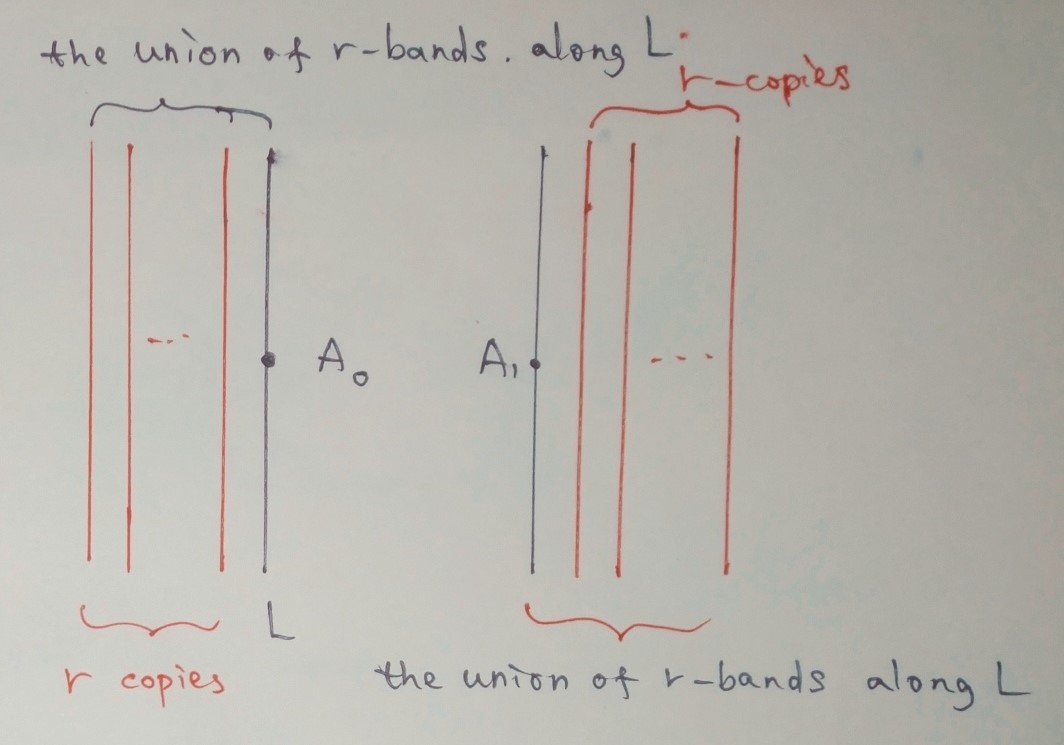 the union of r-bands. along L.
r-copies
...
A₀
A₁
...
L
r copies
the union of r-bands along L